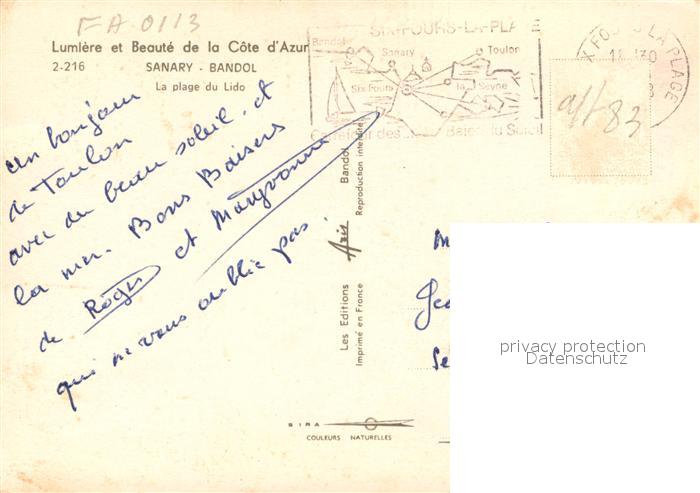 FA.0113
Lumière et Beauté de la Côte d'Azur
2-216 SANARY - BANDOL
La plage du Lido
SIX-FOURS-LA-PLAGE
Bandol
Sanary
Toulon
Six-Fours
la Seyne
Carrefour des Baies du Soleil
X FOURS LA PLAGE
un bonjour
de Toulon
avec du beau soleil. et
la mer. Bons Baisers
de Roger et Maryvonne
qui ne vous oublie pas.
Les Editions Azis Bandol
Imprimé en France
Reproduction interdite
SIRA
COULEURS NATURELLES
privacy protection
Datenschutz